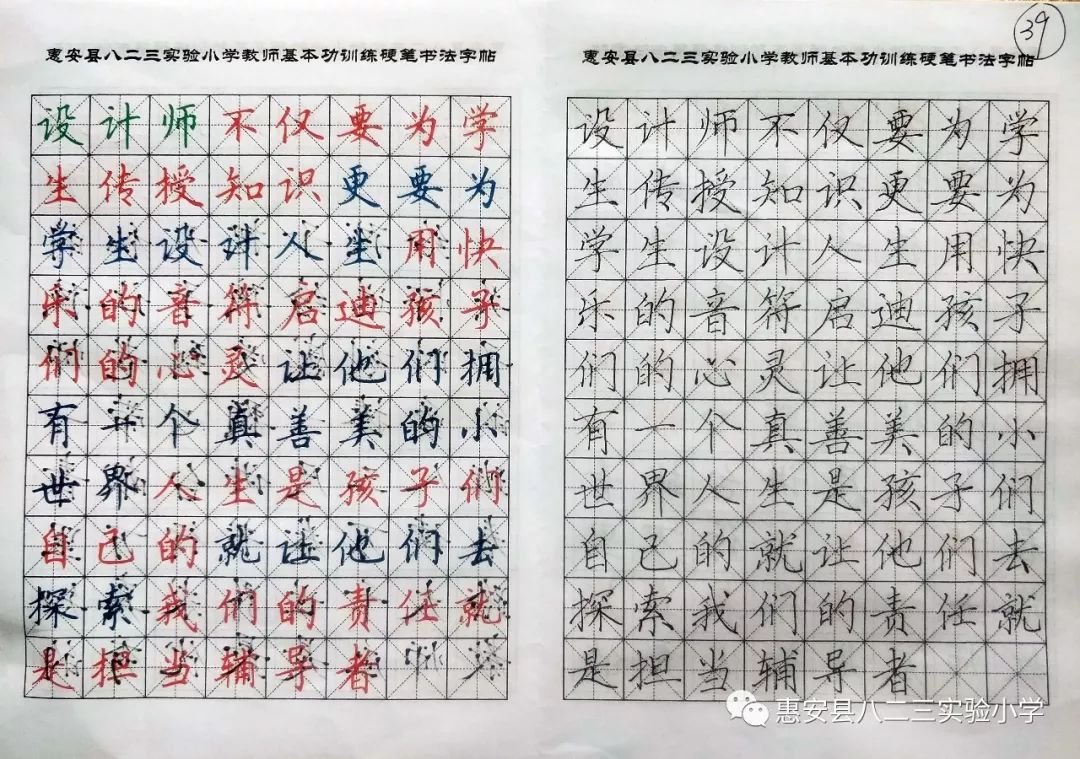 惠安县八二三实验小学教师基本功训练硬笔书法字帖
设计师不仅要为学
生传授知识更要为
学生设计人生用快
乐的音符启迪孩子
们的心灵让他们拥
有一个真善美的小
世界人生是孩子们
自己的就让他们去
探索我们的责任就
是担当辅导者
39
惠安县八二三实验小学教师基本功训练硬笔书法字帖
设计师不仅要为学
生传授知识更要为
学生设计人生用快
乐的音符启迪孩子
们的心灵让他们拥
有一个真善美的小
世界人生是孩子们
自己的就让他们去
探索我们的责任就
是担当辅导者
惠安县八二三实验小学